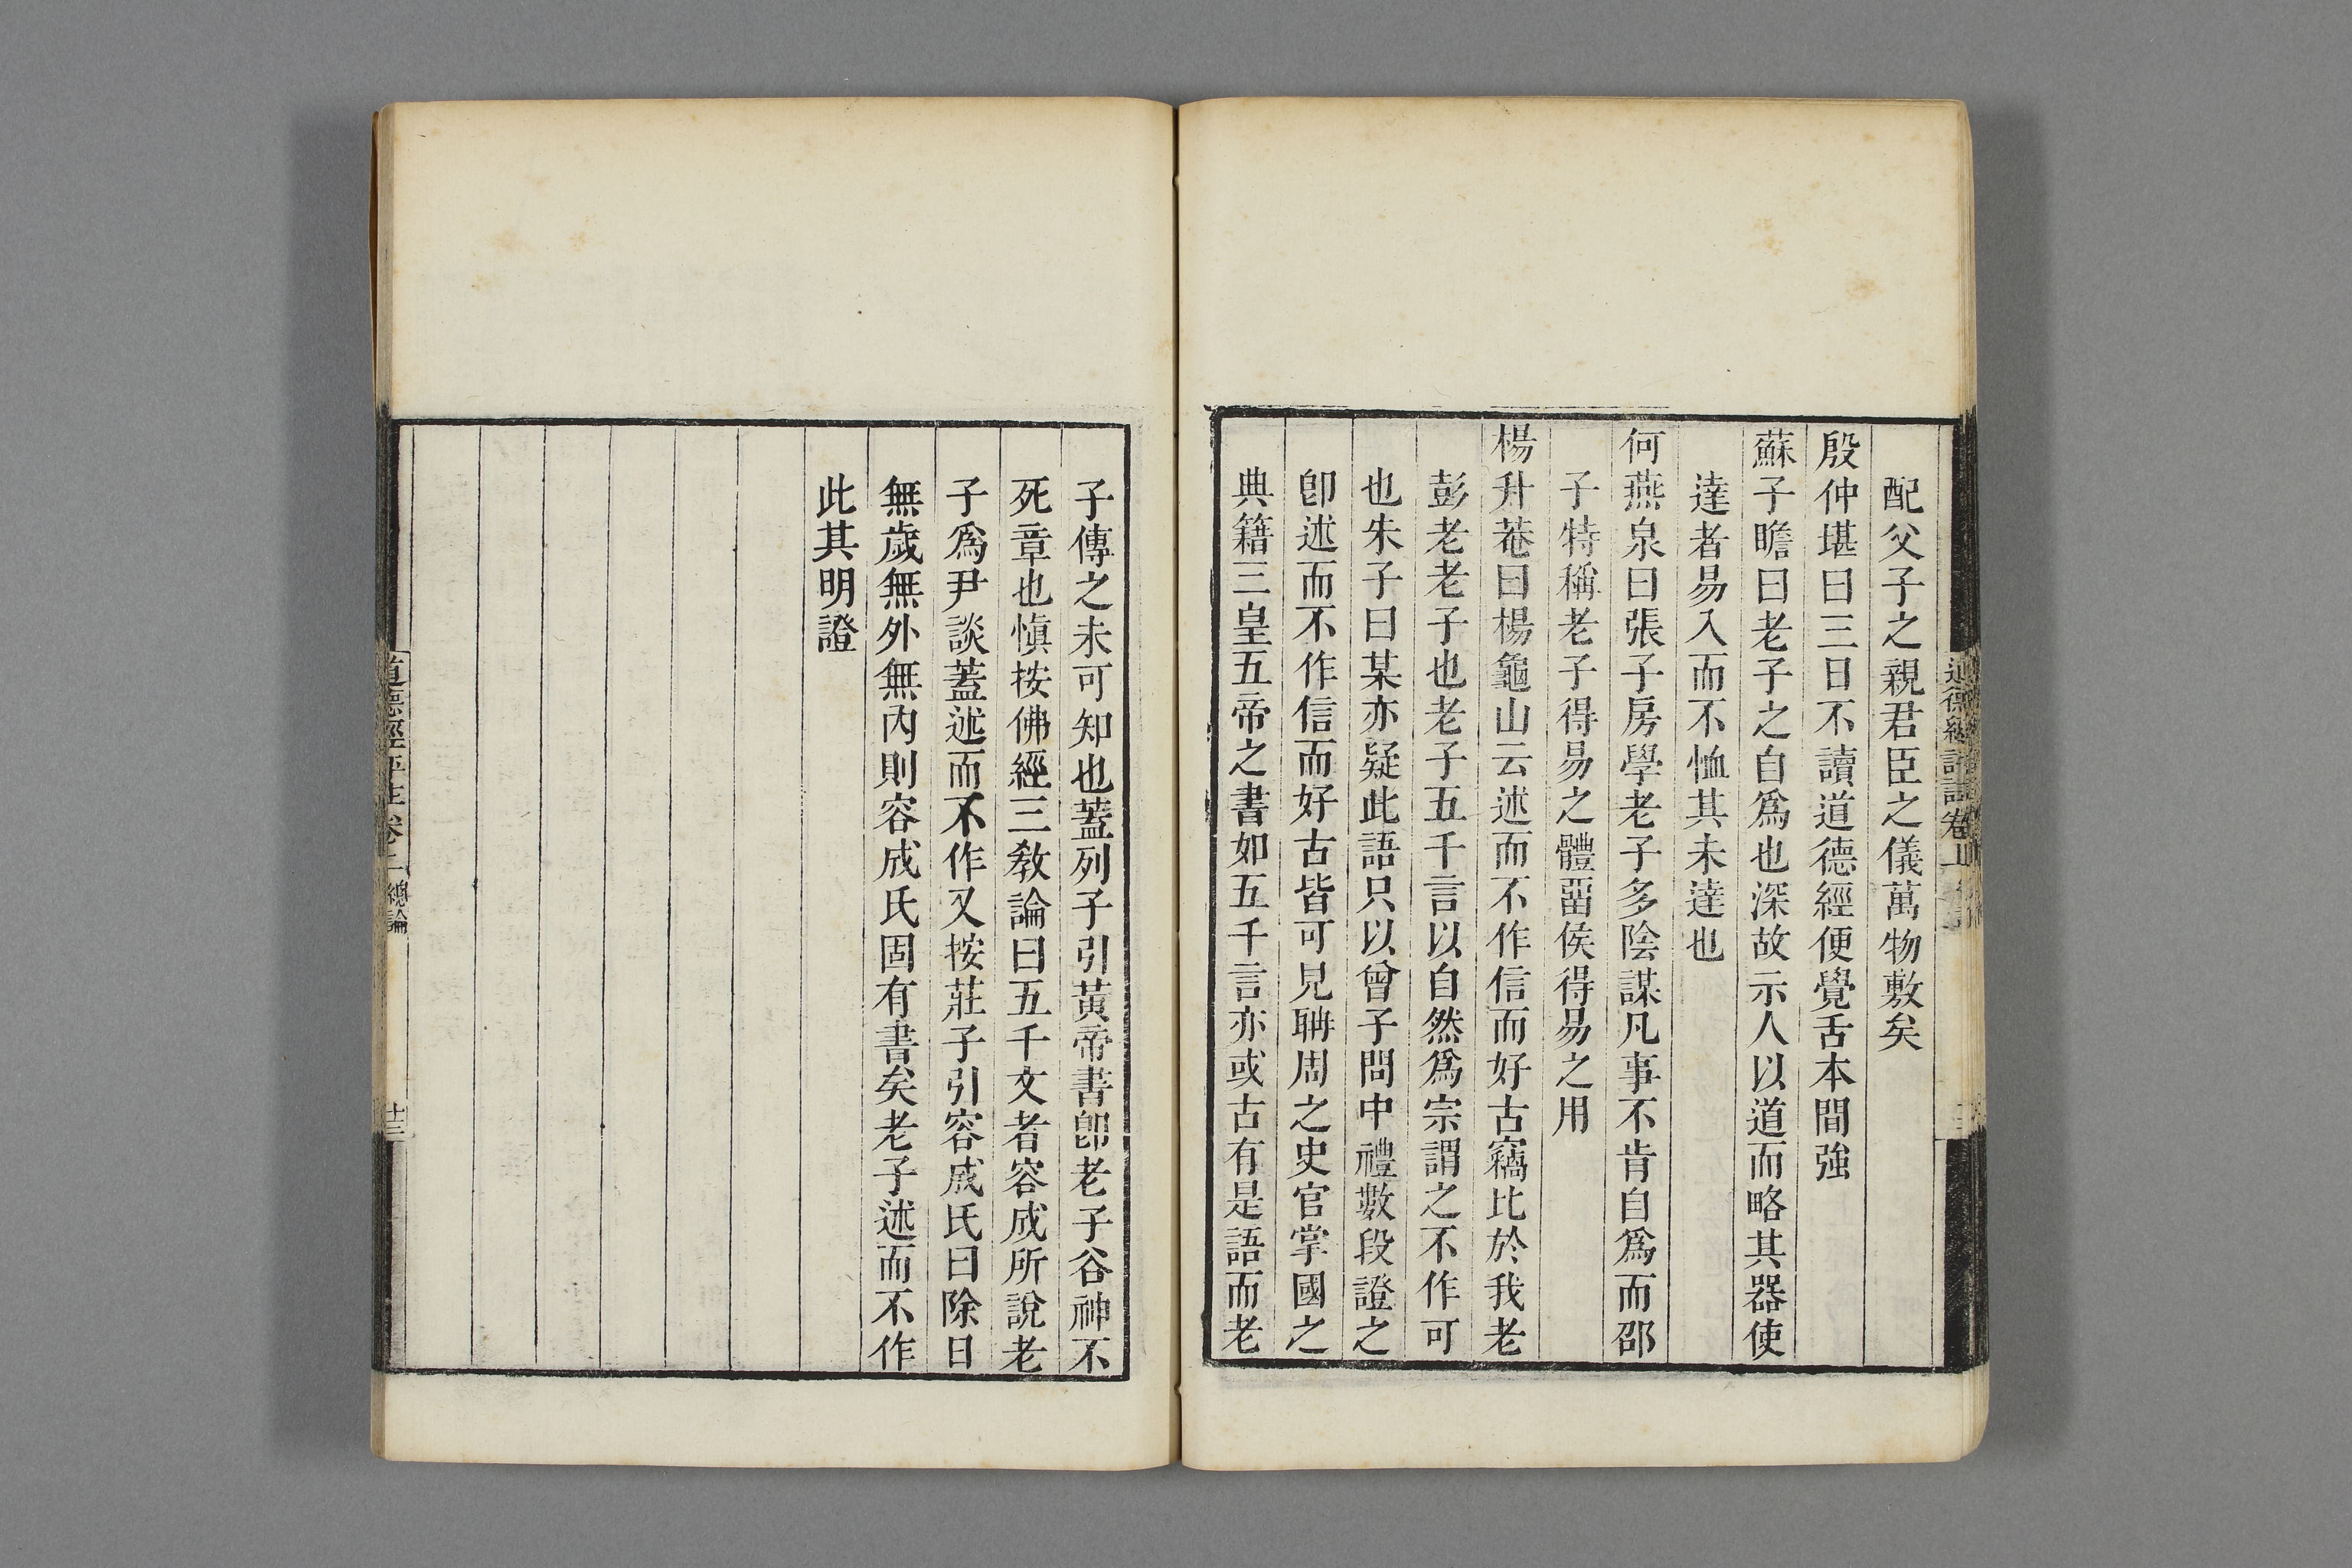 配父子之親君臣之儀萬物敷矣
殷仲堪曰三日不讀道德經便覺舌本間強
蘇子瞻曰老子之自爲也深故示人以道而略其器使
達者易入而不恤其未達也
何燕泉曰張子房學老子多陰謀凡事不肯自爲而邵
子特稱老子得易之體畱侯得易之用
楊升菴曰楊龜山云述而不作信而好古竊比於我老
彭老老子也老子五千言以自然爲宗謂之不作可
也朱子曰某亦疑此語只以曾子問中禮數段證之
卽述而不作信而好古皆可見聃周之史官掌國之
典籍三皇五帝之書如五千言亦或古有是語而老
子傳之未可知也蓋列子引黃帝書卽老子谷神不
死章也愼按佛經三敎論曰五千文者容成所說老
子爲尹談蓋述而不作又按莊子引容成氏曰除日
無歲無外無內則容成氏固有書矣老子述而不作
此其明證
道德經評注卷上 總論
十三